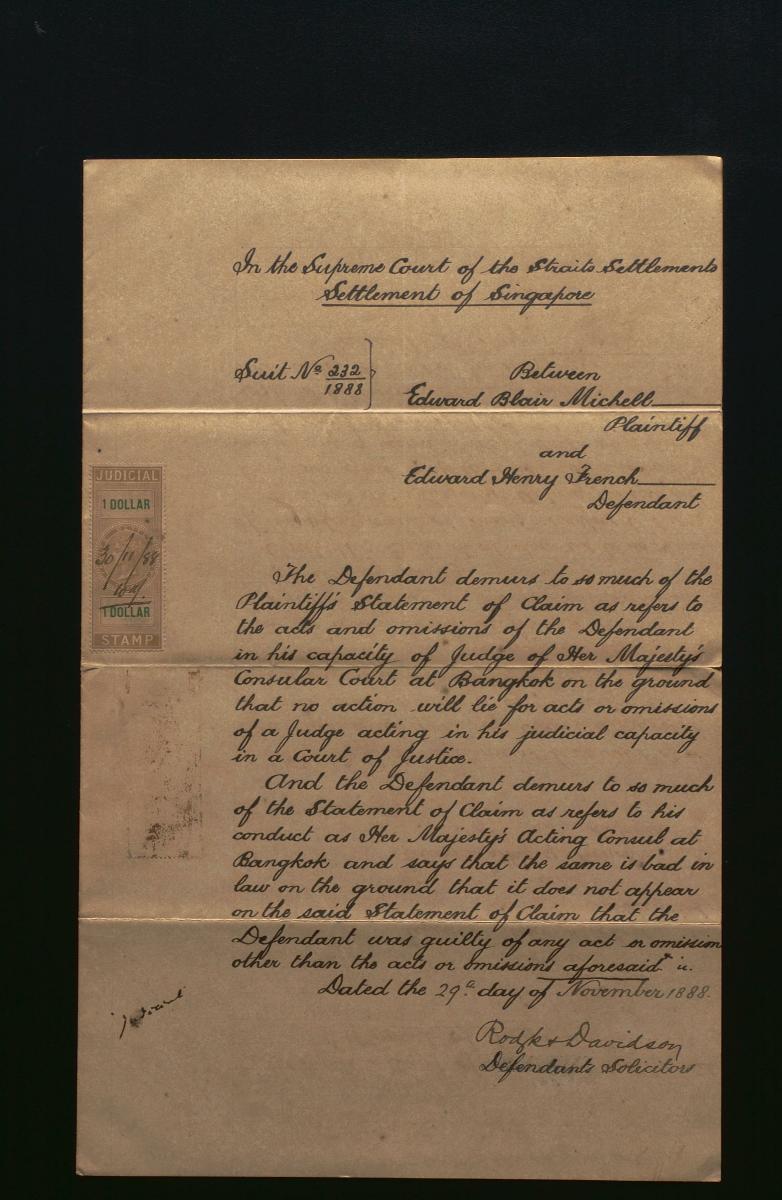 In the Supreme Court of the Straits Settlements
Settlement of Singapore
Suit No 232
1888
Between
Edward Blair Michell
Plaintiff
and
Edward Henry French
Defendant
JUDICIAL
1 DOLLAR
30/11/88
1 DOLLAR
STAMP
The Defendant demurs to so much of the
Plaintiff's Statement of Claim as refers to
the acts and omissions of the Defendant
in his capacity of Judge of Her Majesty's
Consular Court at Bangkok on the ground
that no action will lie for acts or omissions
of a Judge acting in his judicial capacity
in a Court of Justice.
And the Defendant demurs to so much
of the Statement of Claim as refers to his
conduct as Her Majesty's Acting Consul at
Bangkok and says that the same is bad in
law on the ground that it does not appear
on the said Statement of Claim that the
Defendant was guilty of any act or omission
other than the acts or omissions aforesaid
Dated the 29th day of November 1888.
Davidson
Defendants Solicitors